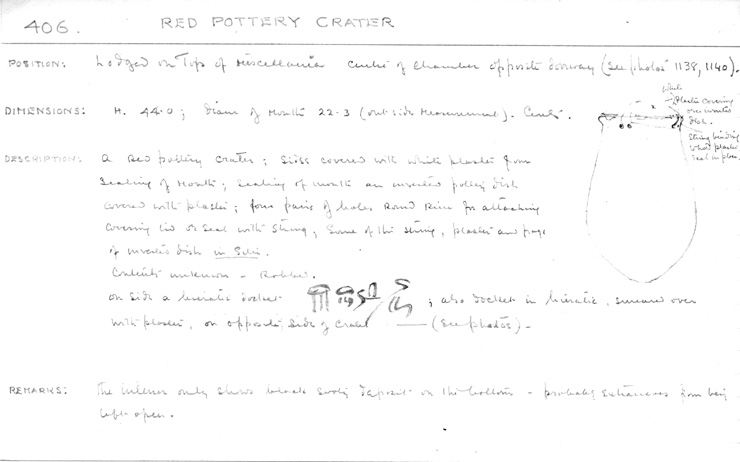 406. RED POTTERY CRATER
POSITION: Lodged on Top of Miscellania centre of chamber opposite doorway (See photos 1138, 1140).
DIMENSIONS: H. 44.0; Diam of Mouth 22.3 (outside Measurement). Cent.
White
Plastic covering
over inverted
dish.
String binding
whole plaster
seal in place.
DESCRIPTION: A Red pottery crater; Sides covered with white plaster from
Sealing of Mouth; Sealing of mouth an inverted pottery dish
covered with plaster; four pairs of holes Round Rim for attaching
covering lid or seal with string; Some of the string, plaster and frags
of inverted dish in Situ.
Contents unknown - Robbed.
on side a hieratic docket ; also docket in hieratic, smeared over
with plaster, on opposite side of crater — (See photos) -
REMARKS: The interior only shows black sooty deposit on the bottom - probably extraneous from being
left open.